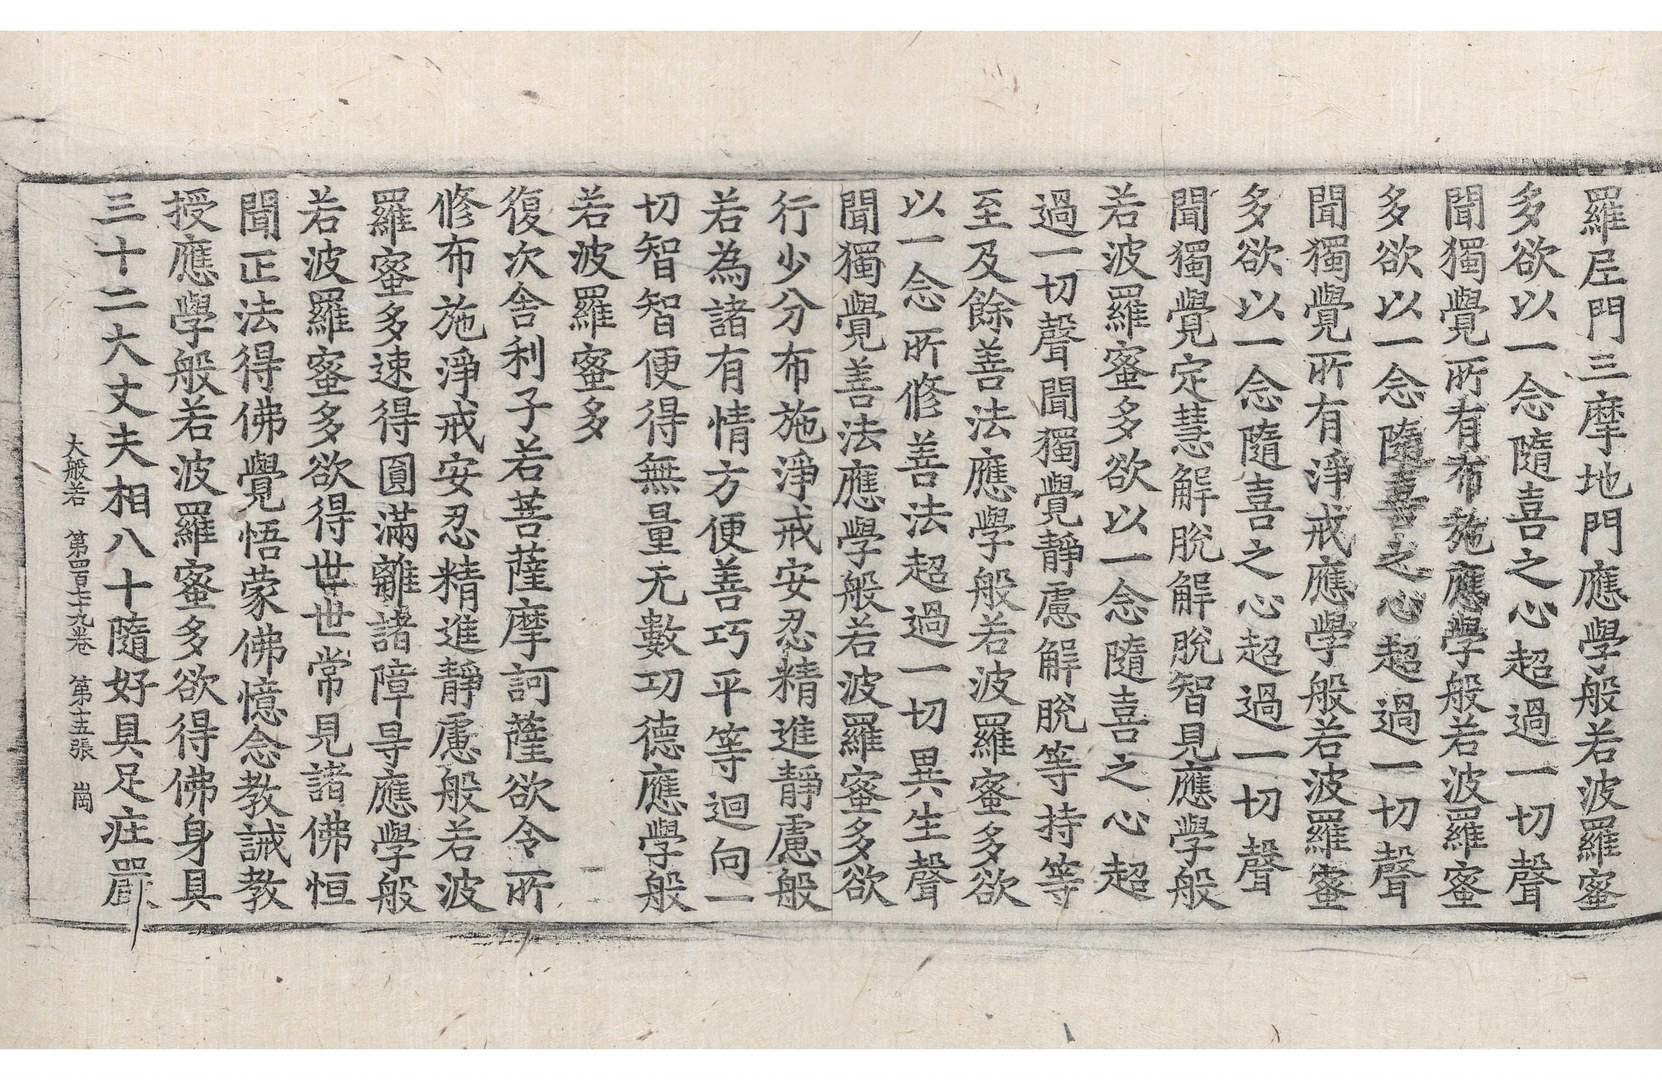 羅尼門三摩地門應學般若波羅蜜
多欲以一念隨喜之心超過一切聲
聞獨覺所有布施應學般若波羅蜜
多欲以一念隨喜之心超過一切聲
聞獨覺所有淨戒應學般若波羅蜜
多欲以一念隨喜之心超過一切聲
聞獨覺定慧解脫解脫智見應學般
若波羅蜜多欲以一念隨喜之心超
過一切聲聞獨覺靜慮解脫等持等
至及餘善法應學般若波羅蜜多欲
以一念所修善法超過一切異生聲
聞獨覺善法應學般若波羅蜜多欲
行少分布施淨戒安忍精進靜慮般
若為諸有情方便善巧平等迴向一
切智智便得無量无數功德應學般
若波羅蜜多
復次舍利子若菩薩摩訶薩欲令所
修布施淨戒安忍精進靜慮般若波
羅蜜多速得圓滿離諸障㝵應學般
若波羅蜜多欲得世世常見諸佛恒
聞正法得佛覺悟蒙佛憶念教誡教
授應學般若波羅蜜多欲得佛身具
三十二大丈夫相八十隨好具足庄嚴
大般若 第四百七十九卷 第十五張 崗